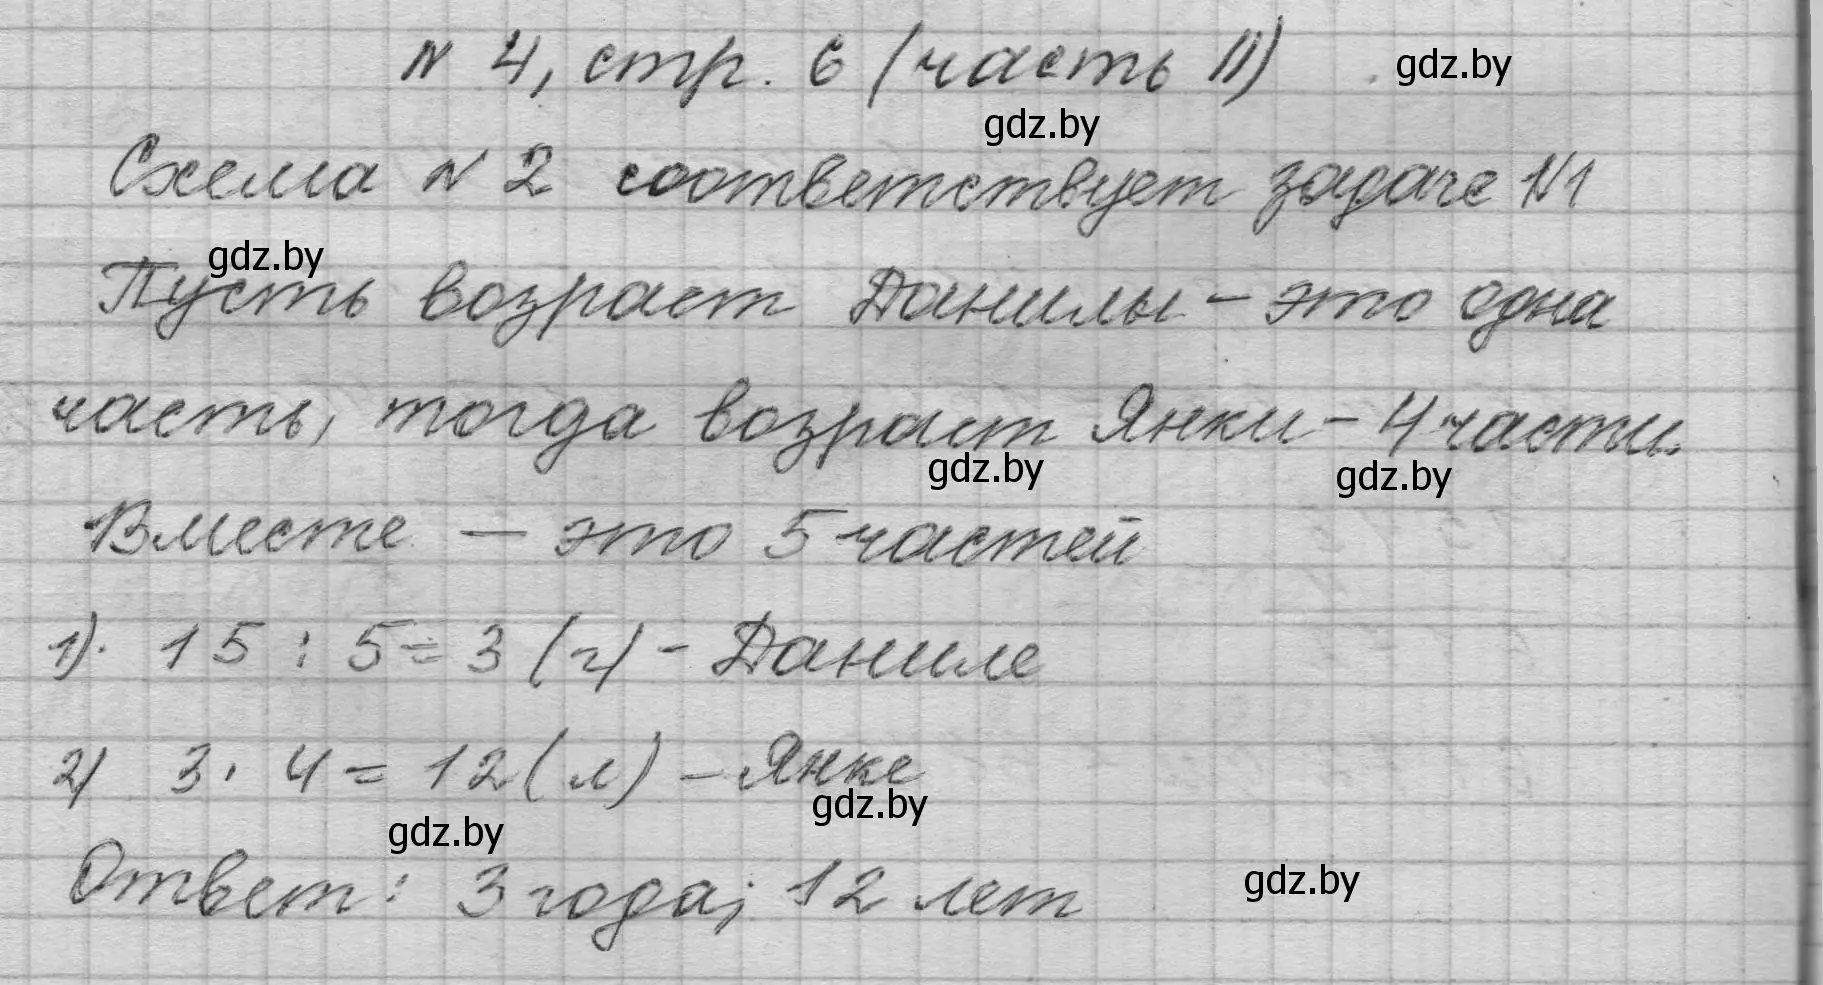 № 4, стр. 6 (часть II)
gdz.by
gdz.by
Схема № 2 соответствует задаче №1
gdz.by
Пусть возраст Данилы - это одна
часть, тогда возраст Янки - 4 части.
gdz.by
gdz.by
Вместе - это 5 частей
1). 15 : 5 = 3 (г) - Даниле
2) 3 · 4 = 12 (л) - Янке
gdz.by
gdz.by
Ответ: 3 года; 12 лет
gdz.by